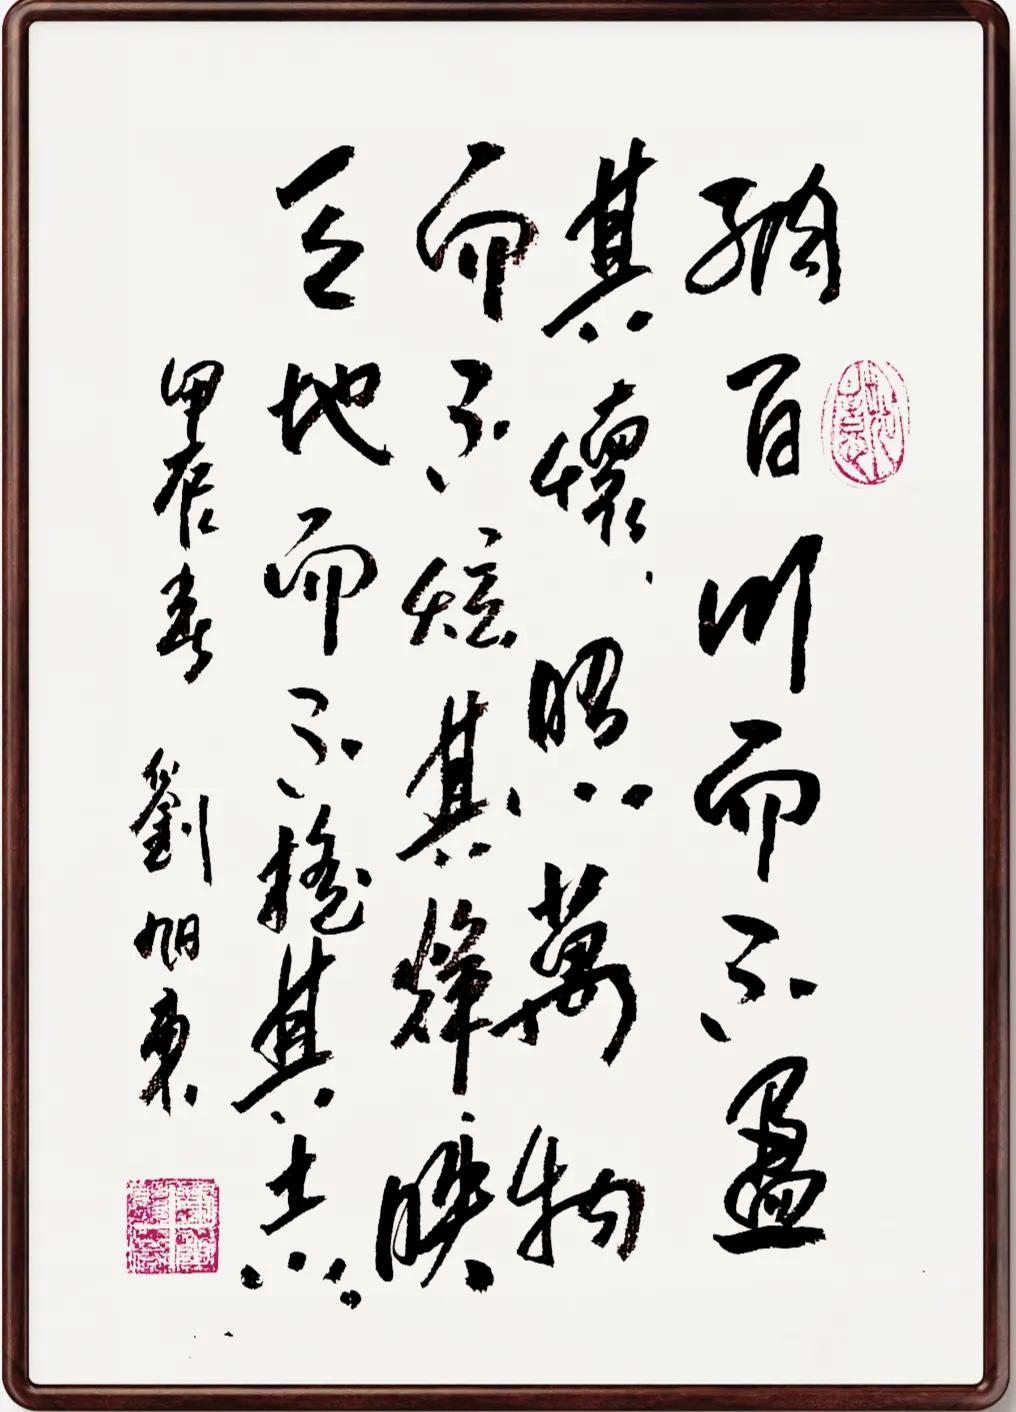 納百川而不盈
其懷照萬物
而不炫其輝映
天地而不搖其志
甲辰春 劉旭東